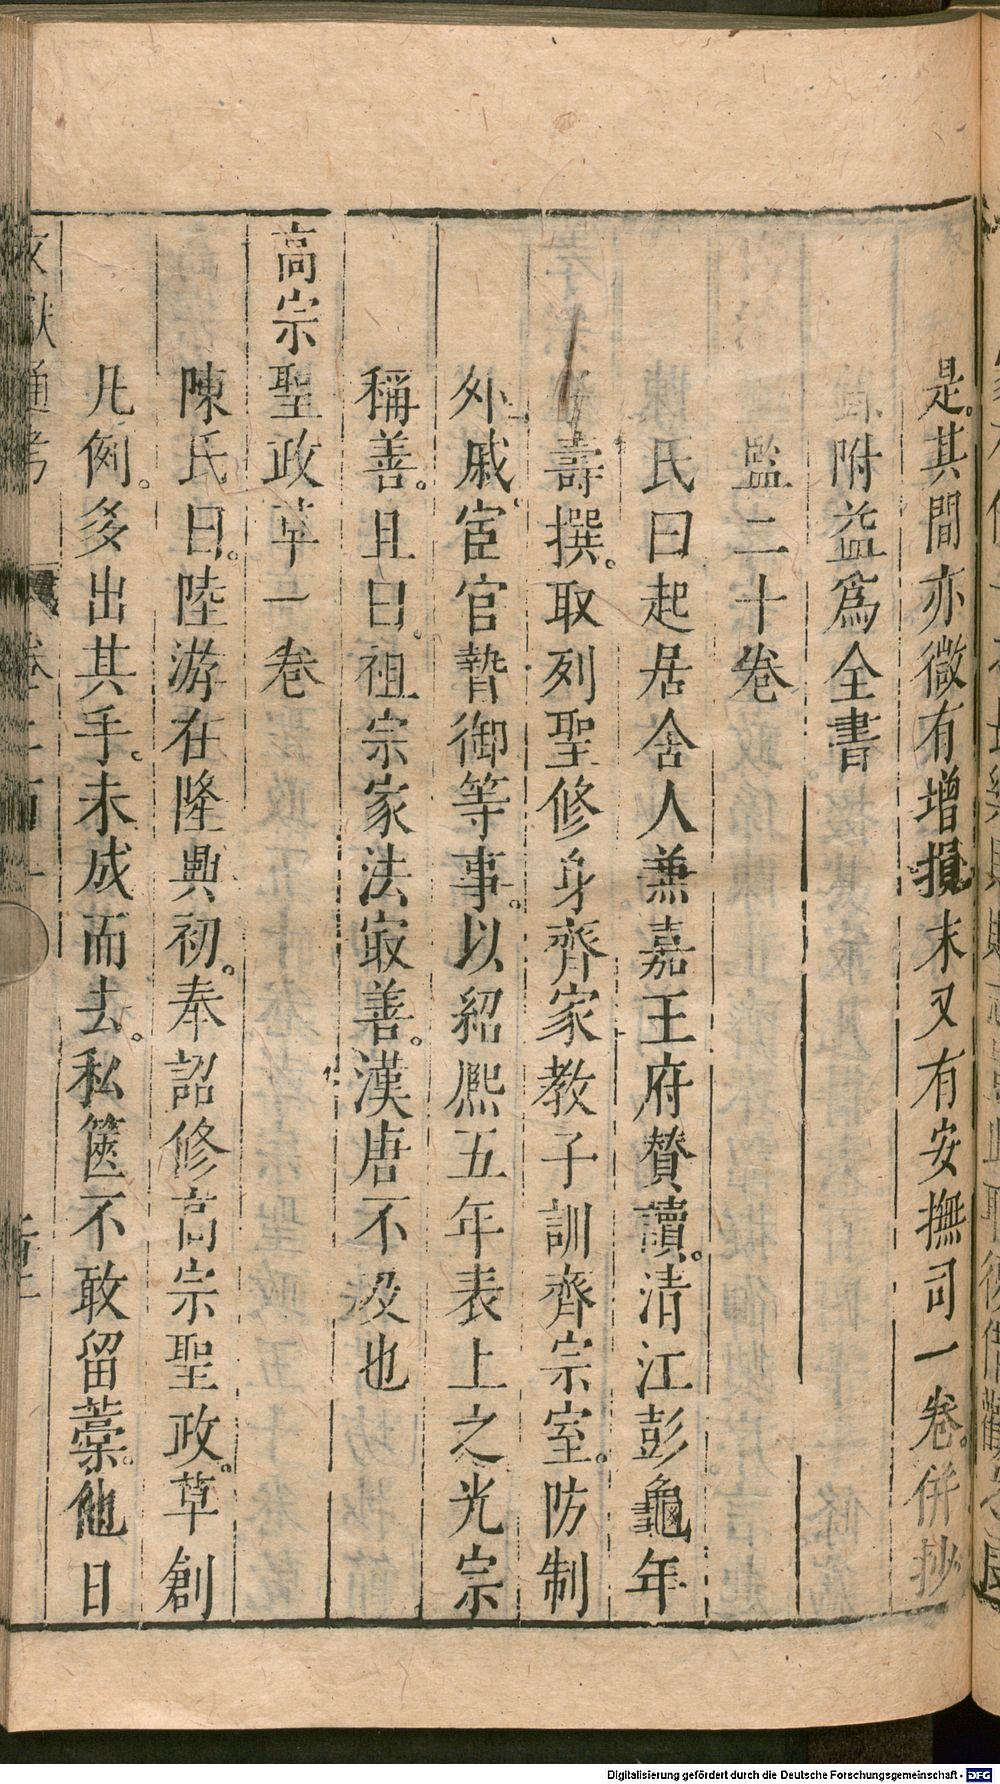 是其間亦微有增損末又有安撫司一卷併抄
附益爲全書
監二十卷
氏曰起居舍人兼嘉王府贊讀清江彭龜年
壽撰取列聖修身齊家教子訓齊宗室防制
外戚宦官贄御等事以紹熙五年表上之光宗
稱善且曰祖宗家法㝡善漢唐不及也
高宗聖政草一卷
陳氏曰陸游在隆興初奉詔修高宗聖政草創
凡例多出其手未成而去私篋不敢留藁他日
文獻通考
Digitalisierung gefördert durch die Deutsche Forschungsgemeinschaft - DFG